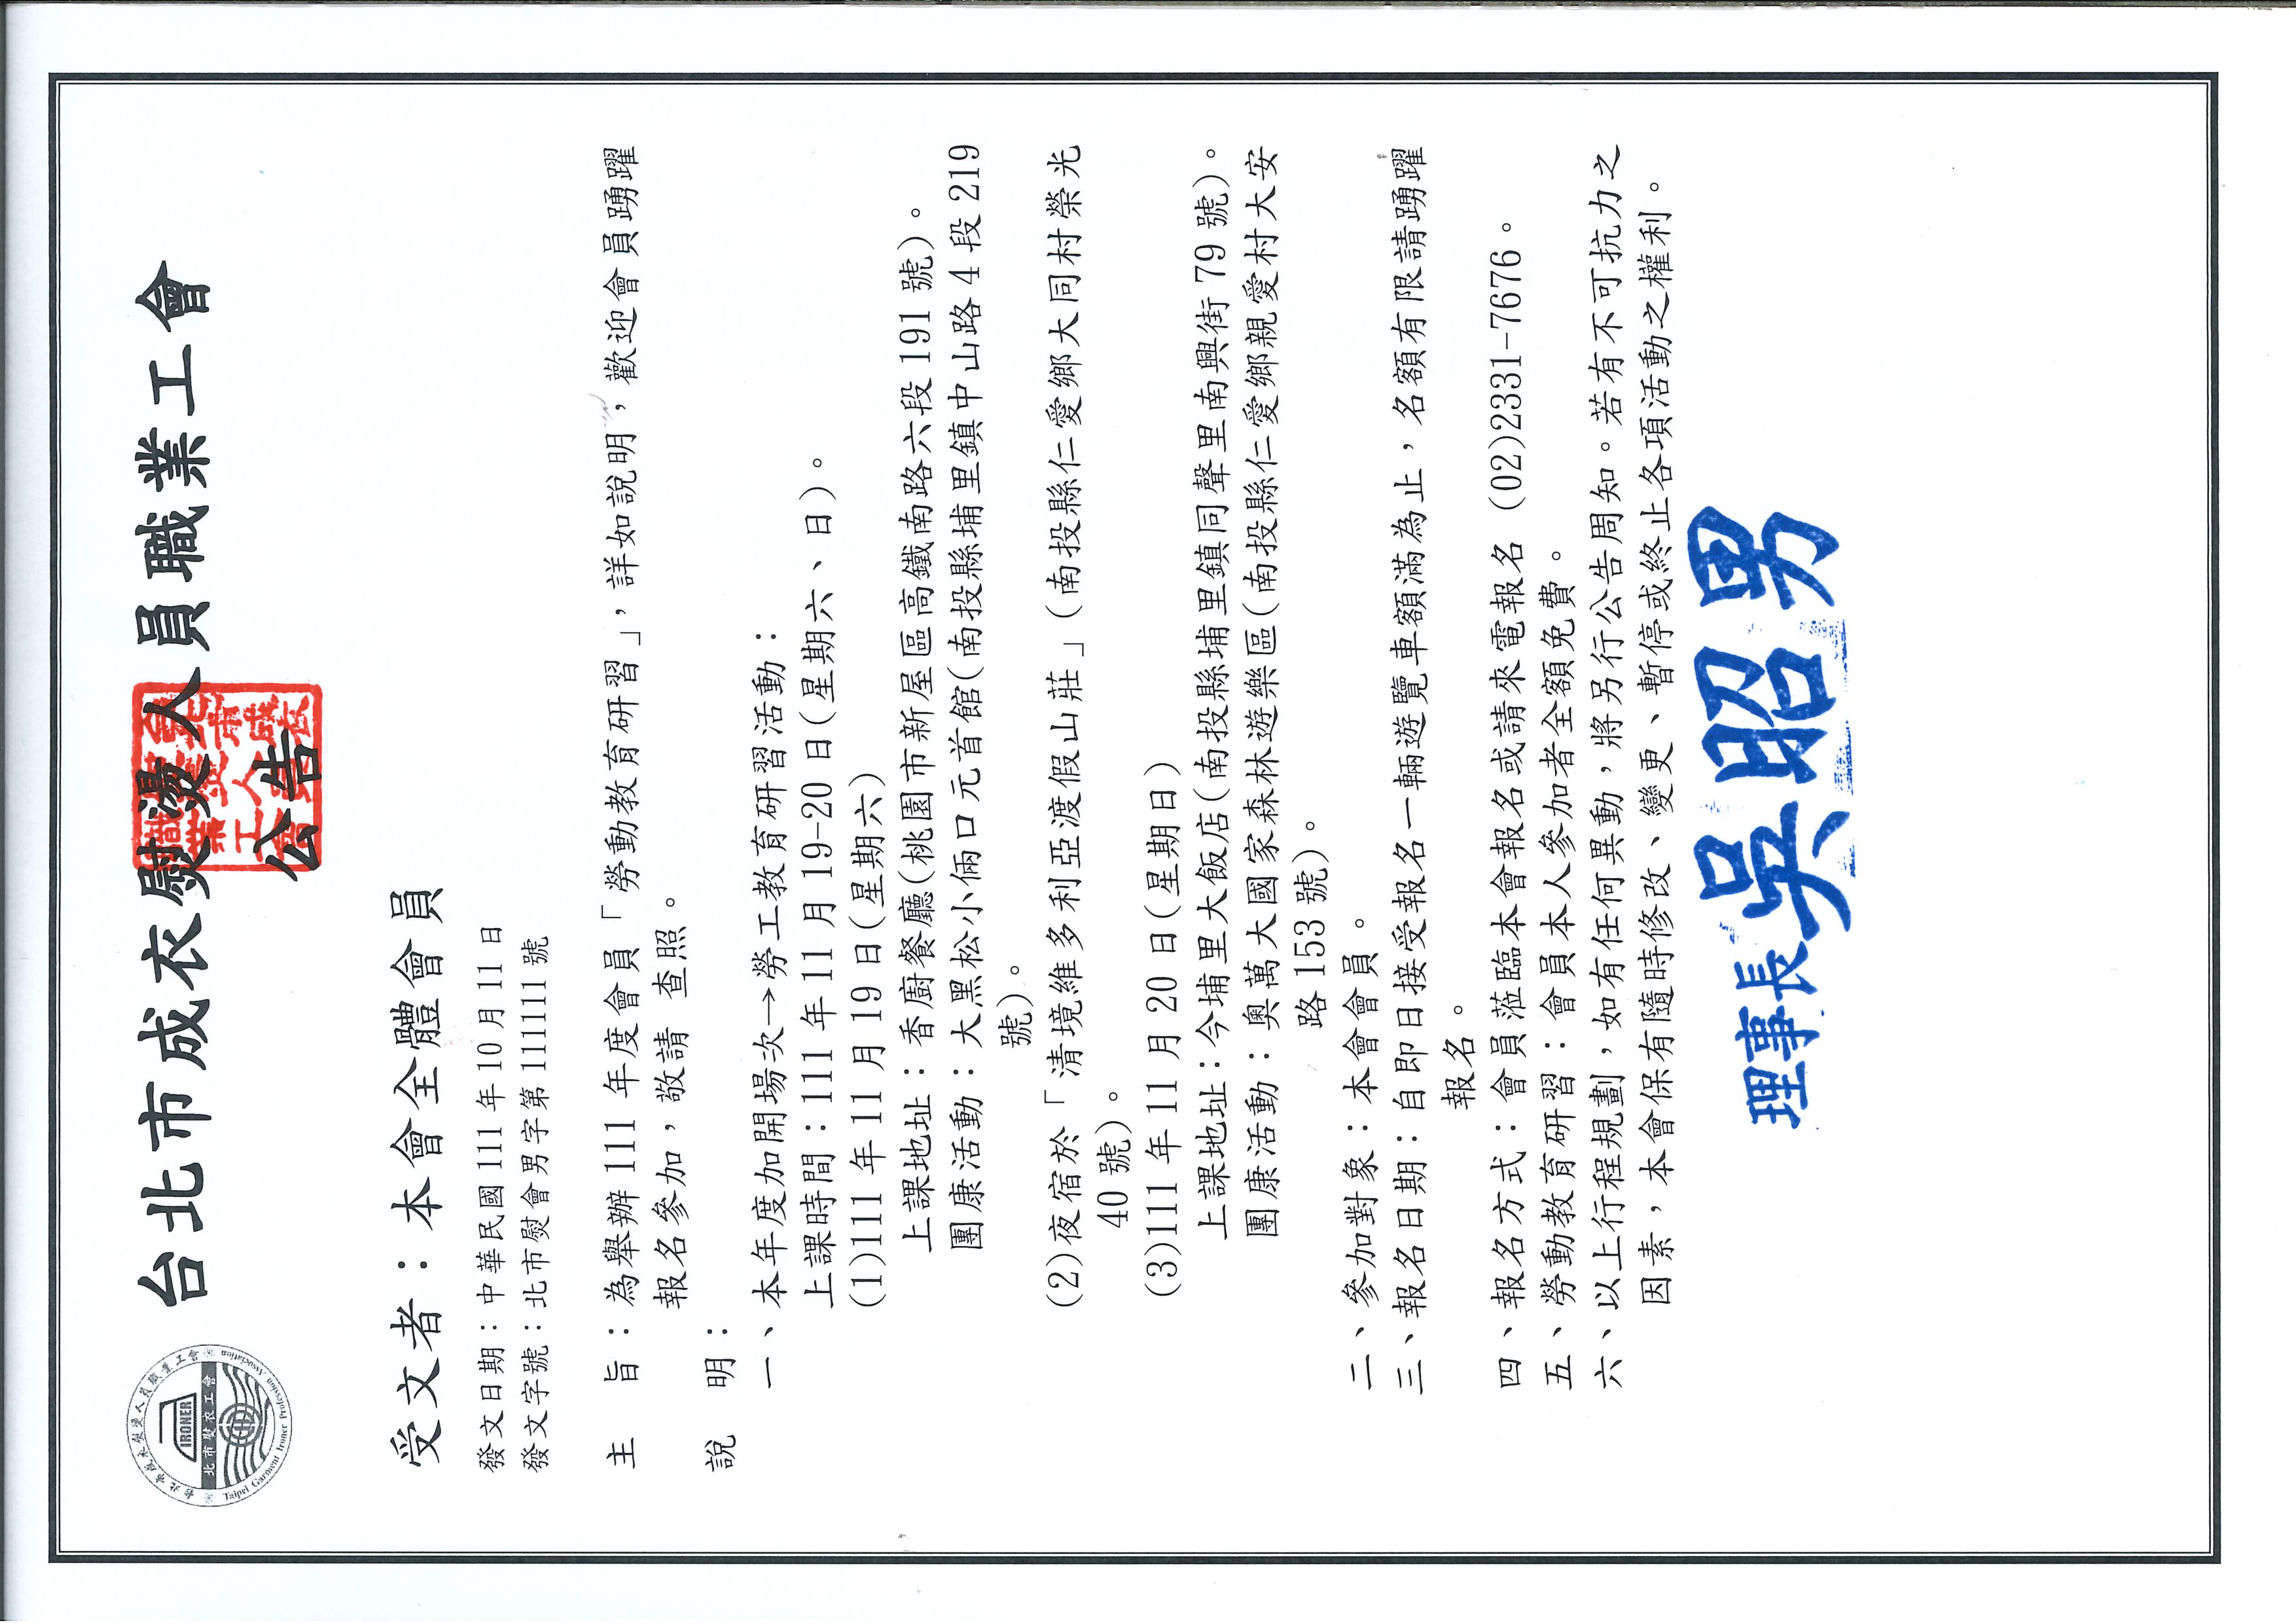 台北市成衣熨燙人員職業工會
公告
IRONER
北市熨衣工會
台北市成衣熨燙人員職業工會
Taipei Garment Ironer Profession Association
受文者：本會全體會員
發文日期：中華民國 111 年 10 月 11 日
發文字號：北市熨會男字第 1111111 號
主　旨：為舉辦 111 年度會員「勞動教育研習」，詳如說明，歡迎會員踴躍
報名參加，敬請 查照。
說　明：
一、本年度加開場次→勞工教育研習活動：
上課時間：111 年 11 月 19-20 日(星期六、日)。
(1)111 年 11 月 19 日(星期六)
上課地址：香廚餐廳(桃園市新屋區高鐵南路六段 191 號)。
團康活動：大黑松小倆口元首館(南投縣埔里鎮中山路 4 段 219
號)。
(2)夜宿於「清境維多利亞渡假山莊」(南投縣仁愛鄉大同村榮光
40 號)。
(3)111 年 11 月 20 日(星期日)
上課地址：今埔里大飯店(南投縣埔里鎮同聲里南興街 79 號)。
團康活動：奧萬大國家森林遊樂區(南投縣仁愛鄉親愛村大安
路 153 號)。
二、參加對象：本會會員。
三、報名日期：自即日接受報名一輛遊覽車額滿為止，名額有限請踴躍
報名。
四、報名方式：會員蒞臨本會報名或請來電報名 (02)2331-7676。
五、勞動教育研習：會員本人參加者全額免費。
六、以上行程規劃，如有任何異動，將另行公告周知。若有不可抗力之
因素，本會保有隨時修改、變更、暫停或終止各項活動之權利。
理事長吳昭男